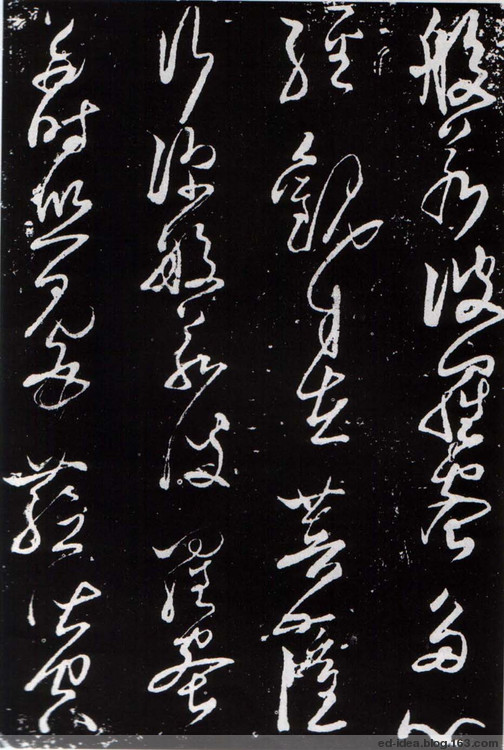 般若波羅蜜多心
經觀自在菩薩
行深般若波羅蜜
多時照見五蘊皆空
ed-idea.blog.163.com